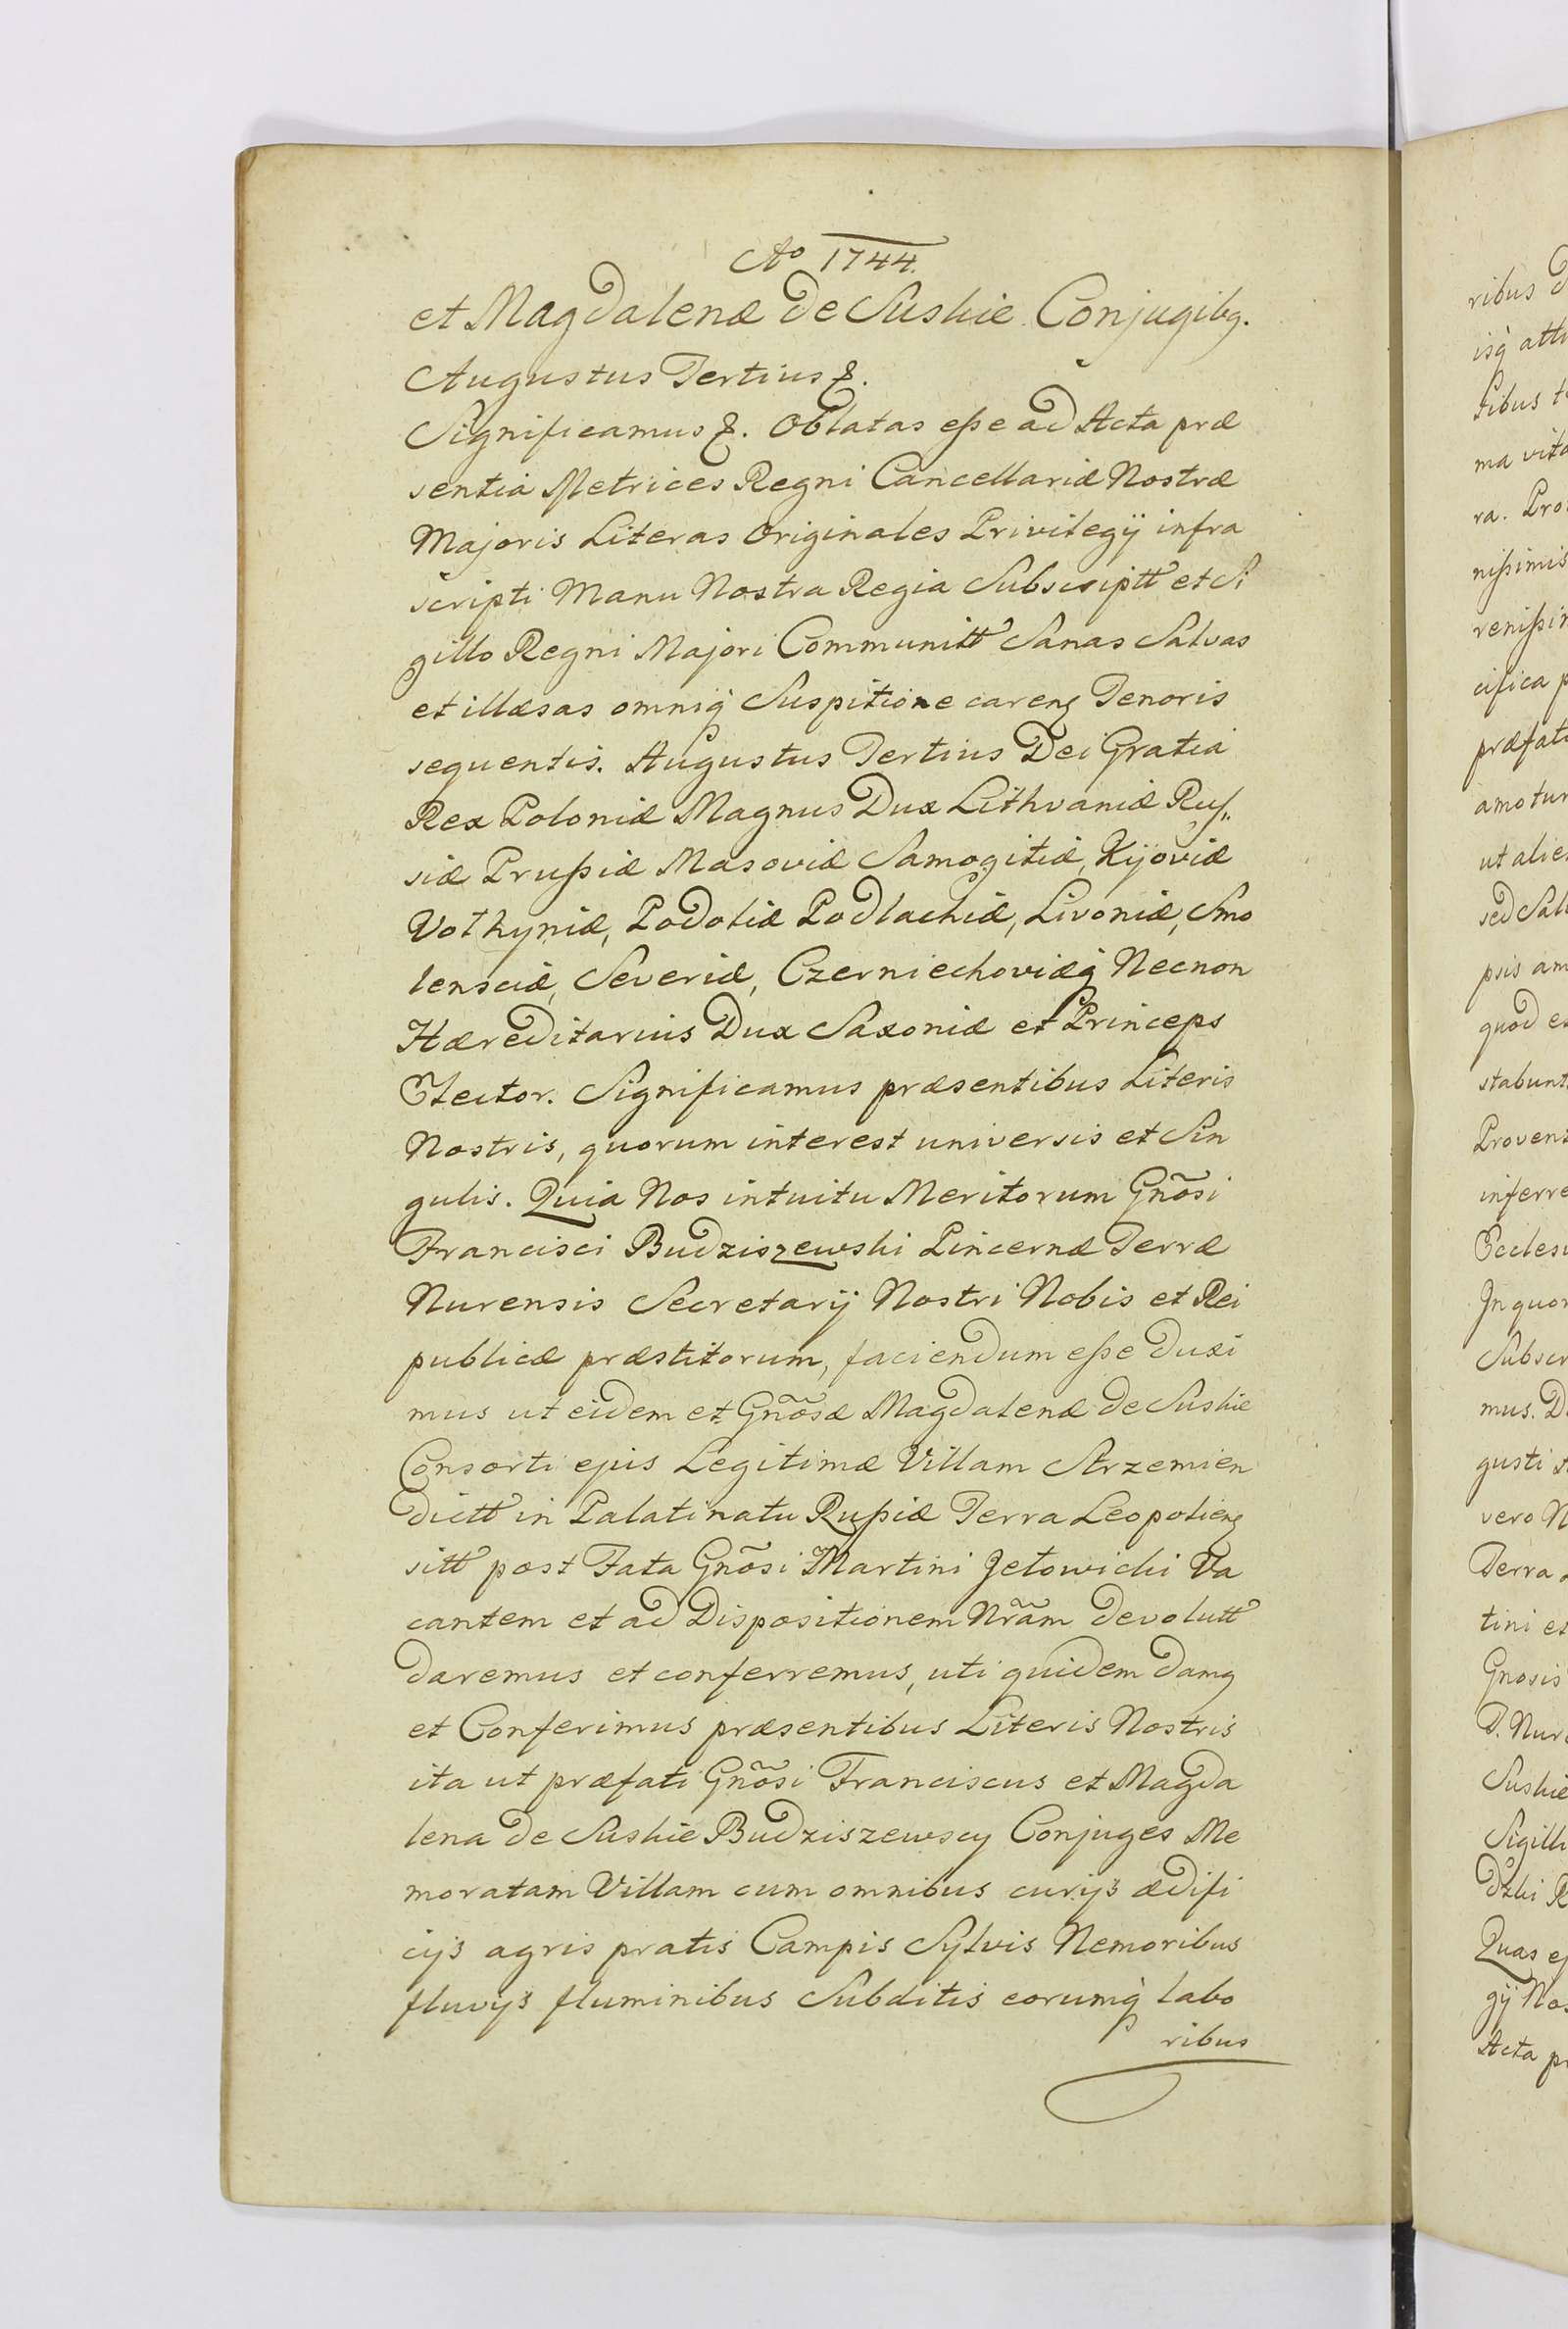 Ao 1744.
et Magdalenæ de Suskie Conjugibq.
Augustus Tertius &.
Significamus &. Oblatas eße ad Acta præ
sentia Metrices Regni Cancellariæ Nostræ
Majoris Literas Originales Privilegij infra
scripti Manu Nostra Regia Subscriptt et Si
gillo Regni Majori Communitt Sanas Salvas
et illæsas omniq Suspitione careng Tenoris
sequentis. Augustus Tertius Dei Gratia
Rex Poloniæ Magnus Dux Lithvaniæ Rus
siæ Prußiæ Masoviæ Samogitiæ, Kijoviæ
Volhyniæ, Podoliæ Podlachiæ, Livoniæ, Smo
lensciæ, Severiæ, Czerniechoviæq Necnon
Hæreditarius Dux Saxoniæ et Princeps
Elector. Significamus præsentibus Literis
Nostris, quorum interest universis et Sin
gulis. Quia Nos intuitu Meritorum Gnõsi
Francisci Budziszewski Pincernæ Terræ
Nurensis Secretarij Nostri Nobis et Rei
publicæ præstitorum, faciendum eße duxi
mus ut eidem et Gnõsæ Magdalenæ de Suskie
Consorti ejus Legitimæ Villam Strzemien
dictt in Palatinatu Rußiæ Terra Leopolieng
sitt post Fata Gnõsi Martini Jełowicki Va
cantem et ad Dispositionem Nrãm devolutt
daremus et conferremus, uti quidem damq
et Conferimus præsentibus Literis Nostris
ita ut præfati Gnõsi Franciscus et Magda
lena de Suskie Budziszewscy Conjuges Me
moratam Villam cum omnibus curijs ædifi
cijs agris pratis Campis Sylvis Nemoribus
fluvijs fluminibus Subditis eorumq labo
ribus